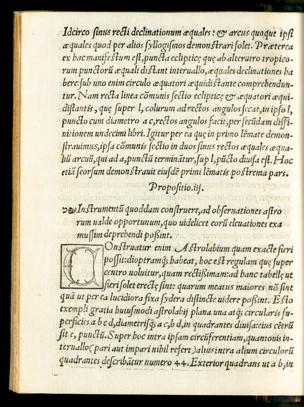 Idcirco sinus recti declinationum æquales: & arcus quoque ipsi
æquales quod per alios syllogismos demonstrari solet. Præterea
ex hac manifestum est, puncta eclipticę que ab alterutro tropico-
rum punctorũ æquali distant interuallo, æquales declinationes ha
bere: sub uno enim circulo æquatori æquidistante comprehendun-
tur. Nam recta linea cõmunis sectio eclipticę & æquatori æqui
distantis, que super l, colurum ad rectos angulos secat, in ipso l,
puncto cum diametro a c, rectos angulos facit, per secũdam diffi-
nitionem undecimi libri. Igitur per ea que in primo lẽmate demon-
strauimus, ipsa cõmunis sectio in duos sinus rectos æquales æqua-
liũ arcuũ, qui ad a, punctũ terminãtur, sup l, pũcto diuisa est. Hoc
etiã scorsum demonstrauit eiusdẽ primi lẽmatis postrema pars.
Propositio.iij.
Instrumentũ quoddam construere, ad obseruationes astro
rum ualde opportunum, quo uidelicet eorũ eleuationes exa
mussim deprehendi possint.
COnstruatur enim Astrolabium quam exacte fieri
possit: dioptramq; habeat, hoc est regulam quę super
centro uoluitur, quam rectissimam: ad hanc tabellę ut
fieri solet erectę sint: quarum meatus maiores nõ sint
quã ut per ea lucidiora fixa sydera distincte uidere possint. Esto
exempli gratia huiusmodi astrolabij plana una atq; circularis su-
perficies a b c d, diametrisq; a c, b d, in quadrantes diuisa: ac cẽtrũ
sit e, punctũ. Super hoc intra ipsam circũferentiam, quantonis in-
teruallo (pari aut impari nihil refert) alius intra alium circulorũ
quadrantes describãtur numero 44. Exterior quadrans ut a b, in